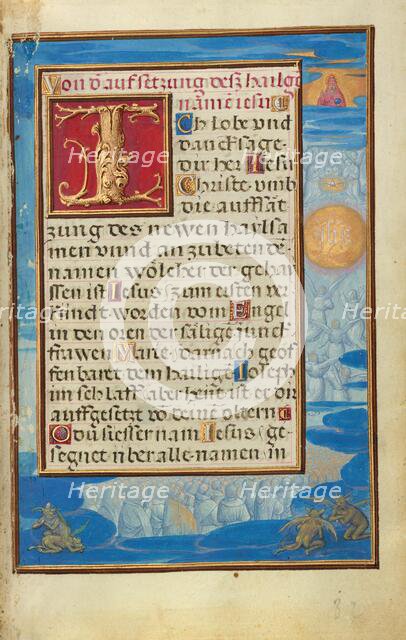 Von d aufsetzung desz hailgē
namē iesu
Ich lobe vnd
danck sage
dir her Jesu
Christe vmb
die auffsät
zung des newen haylsa
men vnnd an zu beten dē
namen wölcher der gehai
ssen ist Jesus zum ersten ver
kindt worden vom Engel
in den oren der sälige junck
frawen Marie darnach geof
fenbaret dem hailigē Joseph
im schlaff aber heut ist er dir
auffgesetzt vō deinē öltern
O du siesser nam Jesus ge
segnet über alle namen in
IHS
Heritage
Images